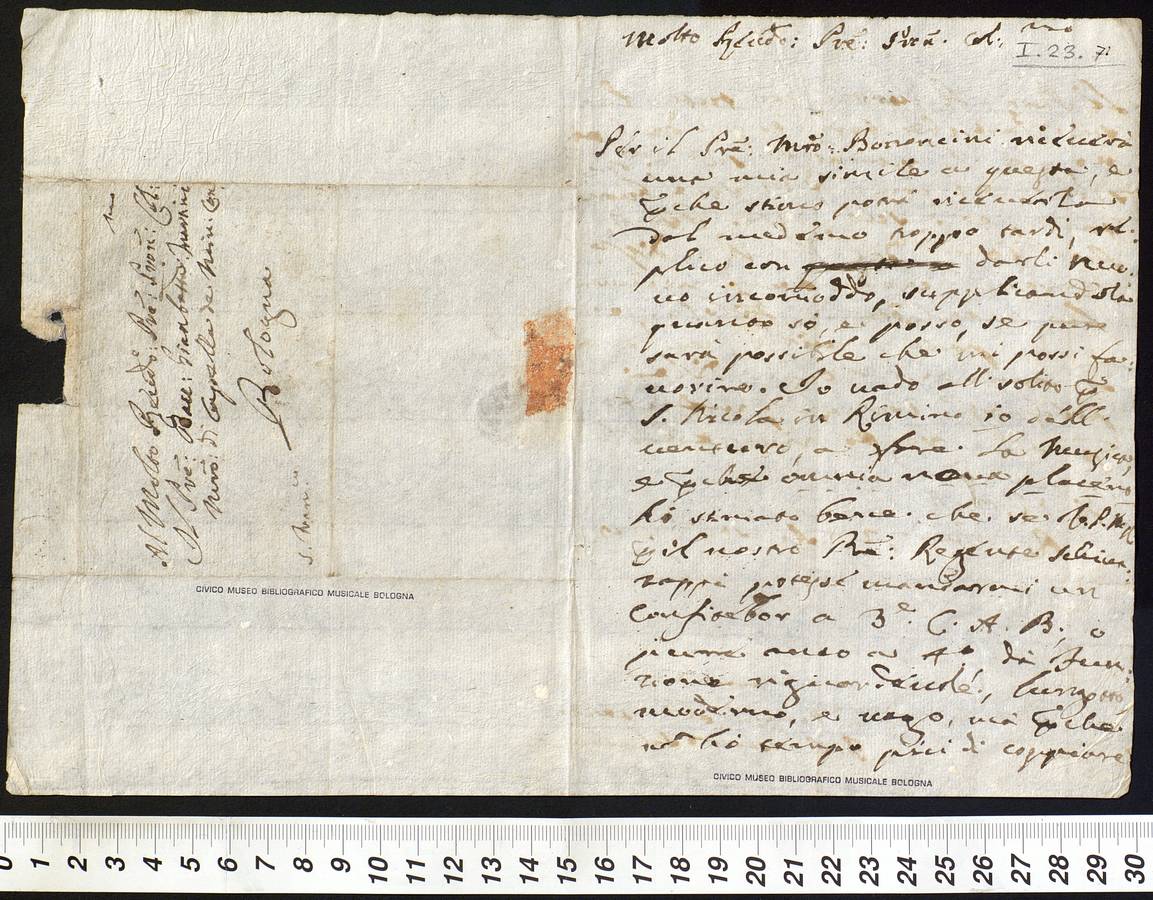 Molto R[everen]do: Pre: Sig.r Col:
mo
I. 23. 7.
Per il Pre: Mro: Bononcini riceverà
una mia simile a questa, e
p che stimo potrà riceverla
dal medemo troppo tardi, re:
plico con darli nuo:
vo incomoddo, supplicandola
quanto sò, e posso, se pure
sarà possibile che mi possi fa:
vorire. Io vado all solito p
S. Nicola in Rimino
venturo, a fare la Musica,
e p che omnia nova placent
hò stimato bene che se V. P. M.
p il nostro Pre: Regente
potesse mandarmi un
Confitebor a 3e. C. A. B., o
pure anco a 4o di Fun:
zione
moderno, e vago, ma p che
nò hò tempo poi di coppiare
Al Molto R[everen]do: Pre: Col:
mo
Il Pre: Giambatta Martini
Mro: di Capella de Min: Con
Bologna
S. Fran:co
CIVICO MUSEO BIBLIOGRAFICO MUSICALE BOLOGNA
CIVICO MUSEO BIBLIOGRAFICO MUSICALE BOLOGNA
0 1 2 3 4 5 6 7 8 9 10 11 12 13 14 15 16 17 18 19 20 21 22 23 24 25 26 27 28 29 30